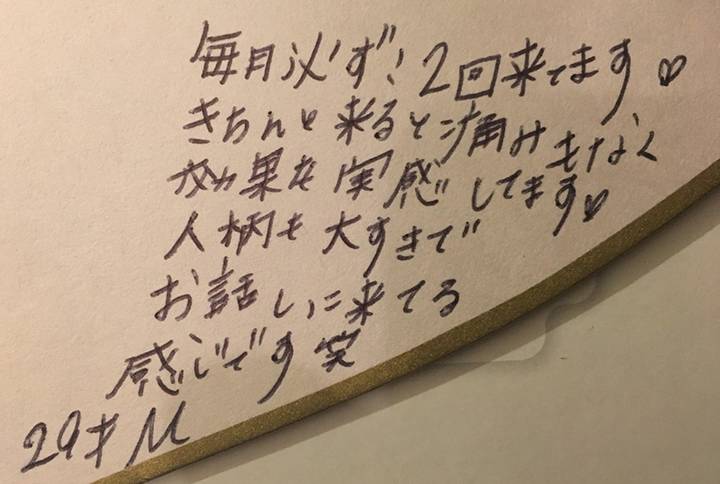 毎月必ず！2回来てます♡
きちんと来ると痛みもなく
効果も実感してます♡
人柄も大すきで
お話しに来てる
感じです笑
29才 M